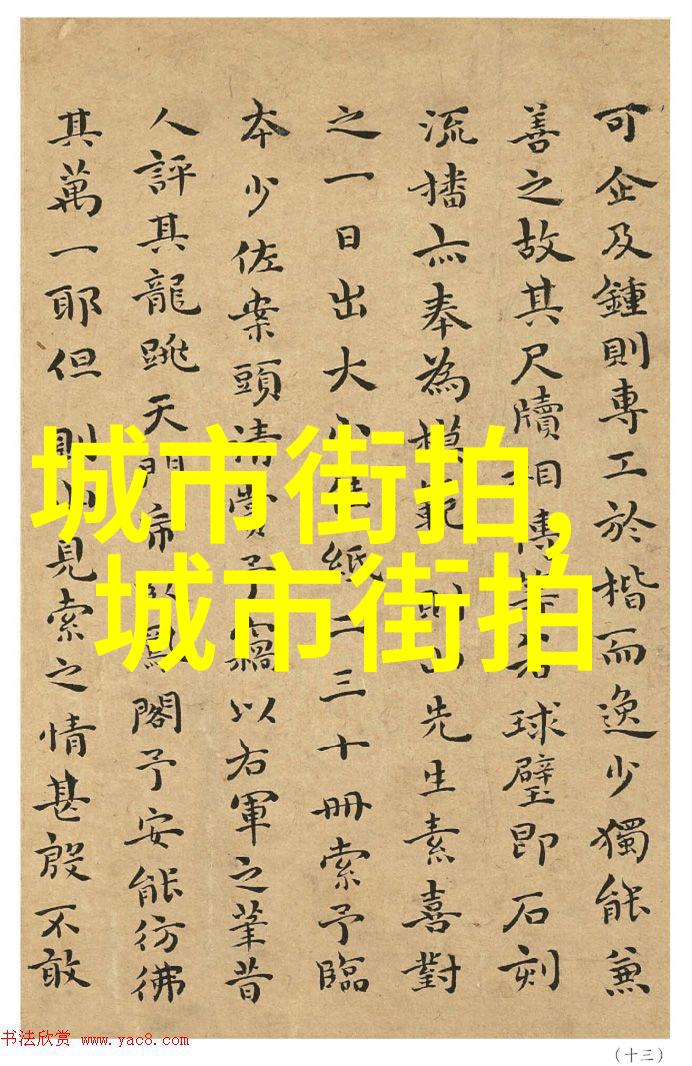 可企及鍾則專工於楷而逸少獨能兼
善之故其尺牘相傳等若球璧即石刻
流播亦奉為模範則山先生素喜對
之一日出大小佳紙二三十冊索予臨
本少佐案頭清賞予竊以右軍之筆昔
人評其龍跳天門虎臥鳳閣予安能彷彿
其萬一耶但則山見索之情甚殷不敢
城市街拍,
城市街拍
书法欣赏 www.yac8.com
(十三)